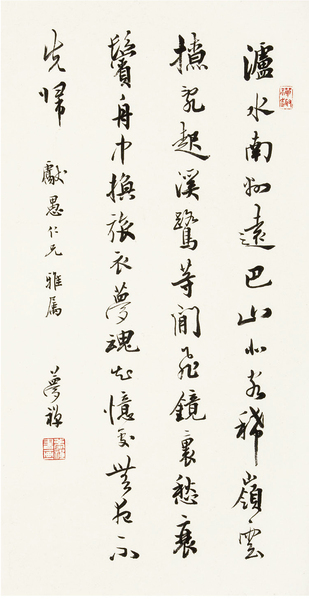 瀘水南州遠巴山北客稀嶺雲
撩亂起溪鷺等閒飛鏡裏愁衰
鬢舟中換旅衣夢魂知憶處無夜不
先歸
獻愚仁兄雅屬
夢禪